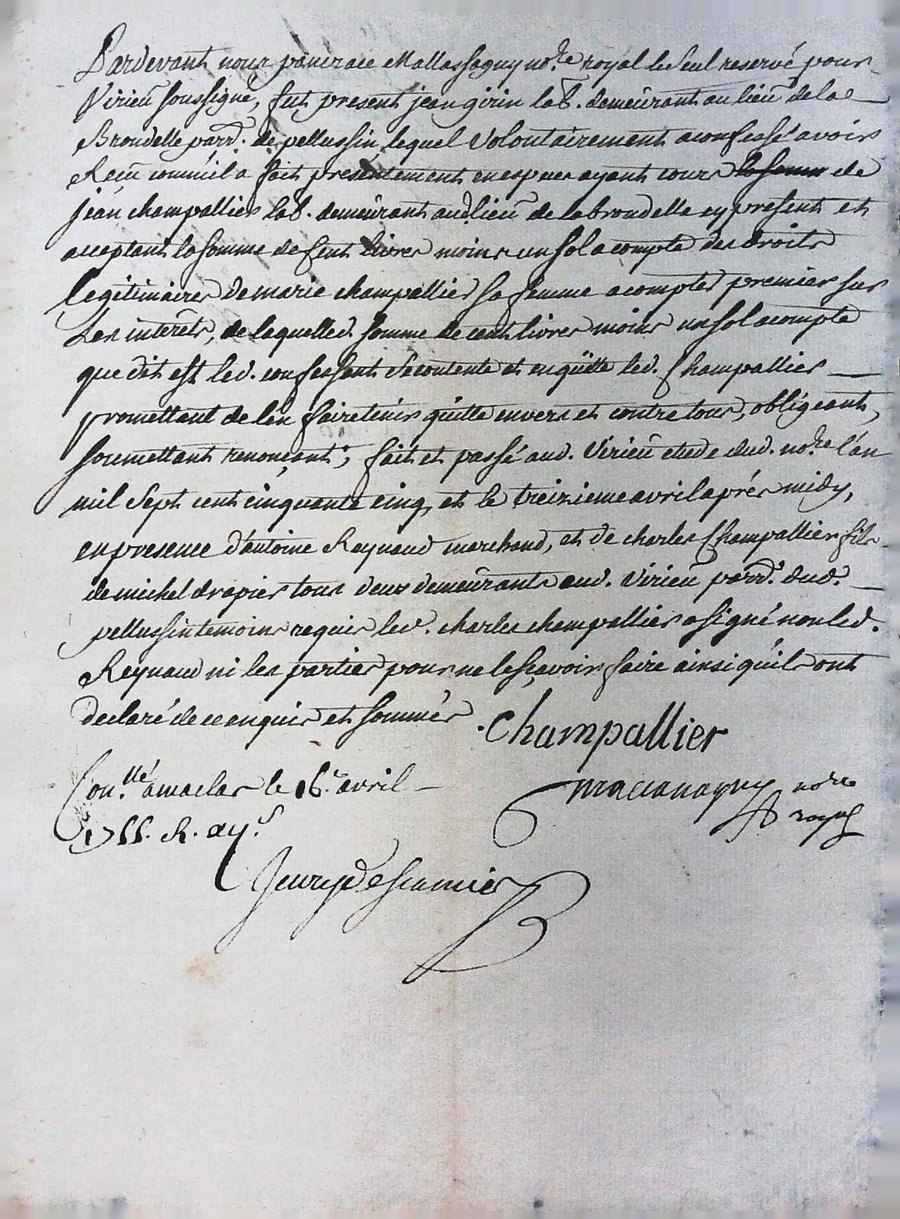 Pardevant nous pancrace Mallassagny no.re royal le seul reservé pour
Virieu soussigné, fut present jean girin lab. demeurant au lieu de la
Brondelle parr. de pellussin lequel volontairement a confessé avoir
Recu comm'il a fait presentement en espèces ayant cours la somme de
jean champallier lab. demeurant aud. lieu de la brondelle cy present et
acceptant la somme de Cent livres moins un sol a compte des droits
legitimaires de marie champallier sa femme a compte premier sur
les interets, de laquelle d. somme de cent livres moins un sol a compte
que dit est led. confessant se contente et en quitte led. Champallier
promettant de l'en faire tenir quitte envers et contre tous, obligeant,
soumettant renonçant; fait et passé aud. Virieu etude dud. no.re l'an
mil sept cent cinquante cinq, et le treizieme avril aprés midy,
en presence d'antoine Reynaud marchand, et de charles Champallier fils
de michel drapier tous deux demeurants aud. Virieu parr. dud.
pellussin temoins requis led. charles champallier a signé non led.
Reynaud ni les parties pour ne le sçavoir faire ainsi qu'ils ont
declaré de ce enquis et sommés
Champallier
Con.llé a maclas le 16.e avril
1755. R.
no.re
royal